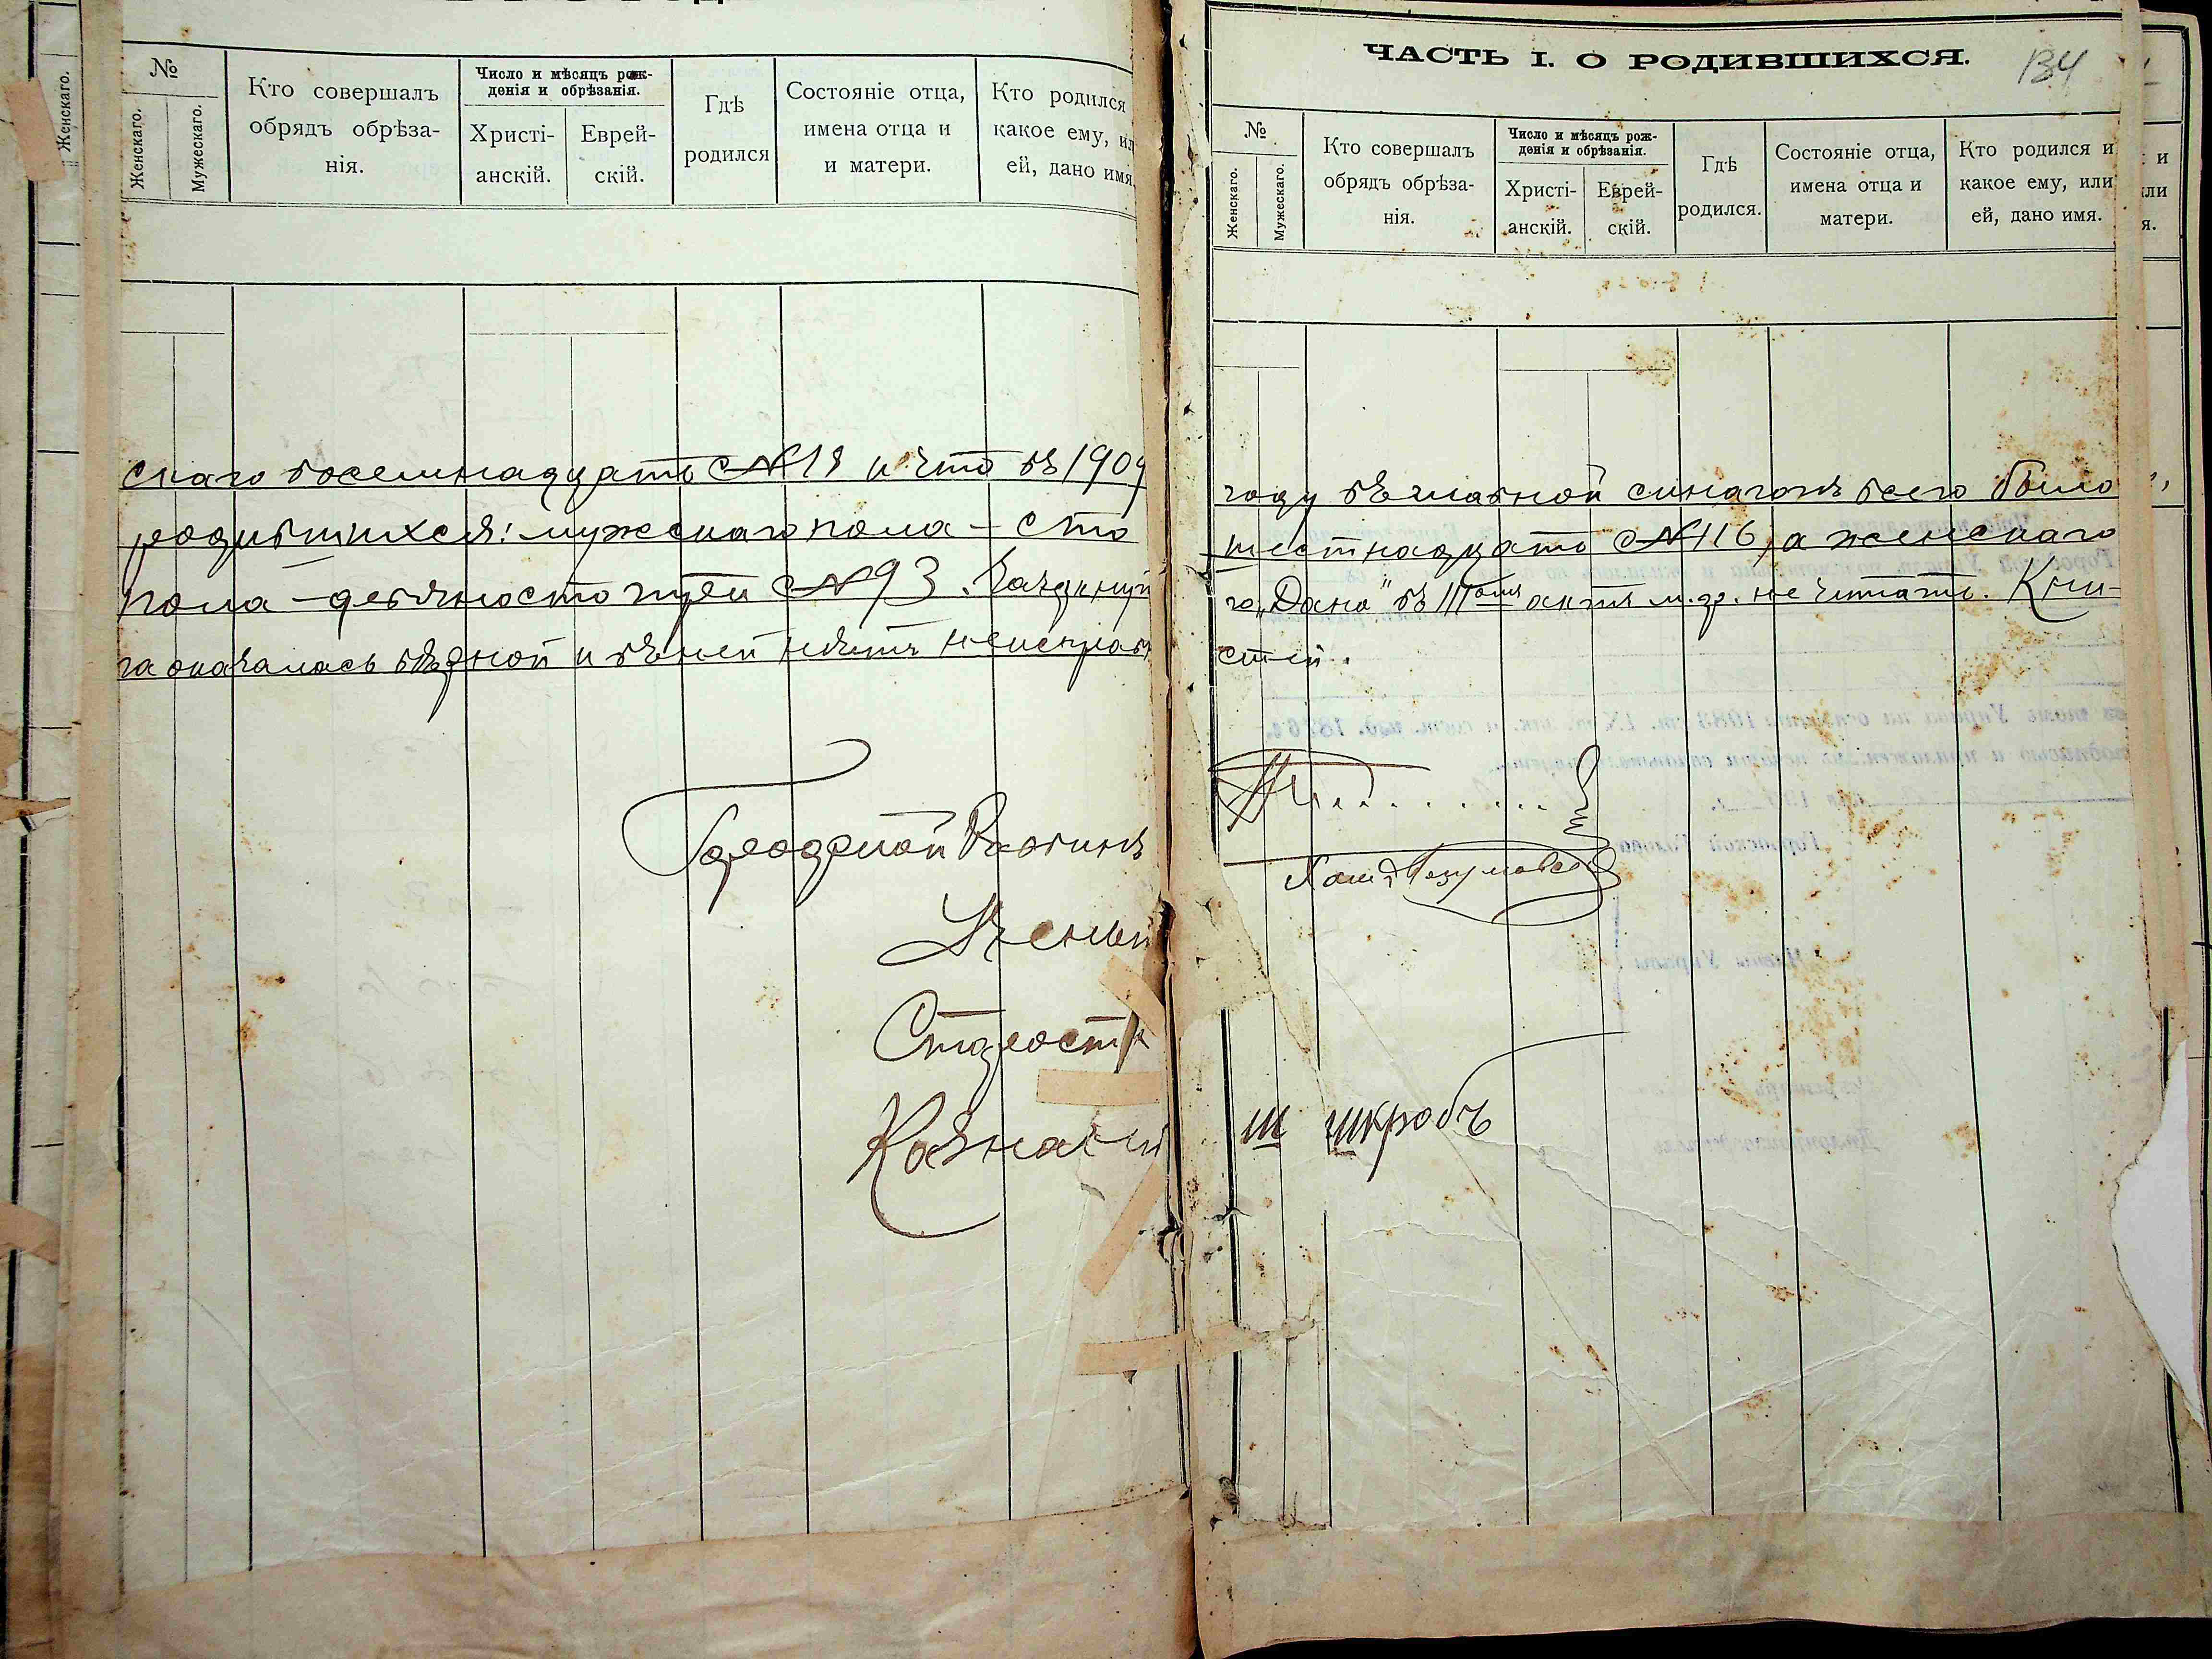 №
Женскаго.
Мужескаго.
Кто совершалъ
обрядъ обрѣза-
нія.
Число и мѣсяцъ рож-
денія и обрѣзанія.
Христі-
анскій.
Еврей-
скій.
Гдѣ
родился
Состояніе отца,
имена отца и
и матери.
Кто родился
какое ему, ил
ей, дано имя.
Женскаго.
скаго восемнадцать №18 и что въ 1909
родившихся: мужескаго пола — сто
пола — девяносто три №93.
га оказалась вѣрной и въ ней нѣтъ неисправн
Городской Раввинъ
Ученый
Староста
Казначей
ЧАСТЬ I. О РОДИВШИХСЯ.
134
№
Женскаго.
Мужескаго.
Кто совершалъ
обрядъ обрѣза-
нія.
Число и мѣсяцъ рож-
денія и обрѣзанія.
Христі-
анскій.
Еврей-
скій.
Гдѣ
родился.
Состояніе отца,
имена отца и
матери.
Кто родился и
какое ему, или
ей, дано имя.
и
ли
я.
году въ главной синагогѣ всего было
шестнадцать №116, а женскаго
го „Дана" въ актѣ м. р. не читать. Кни-
стей.
Ш Шкробъ